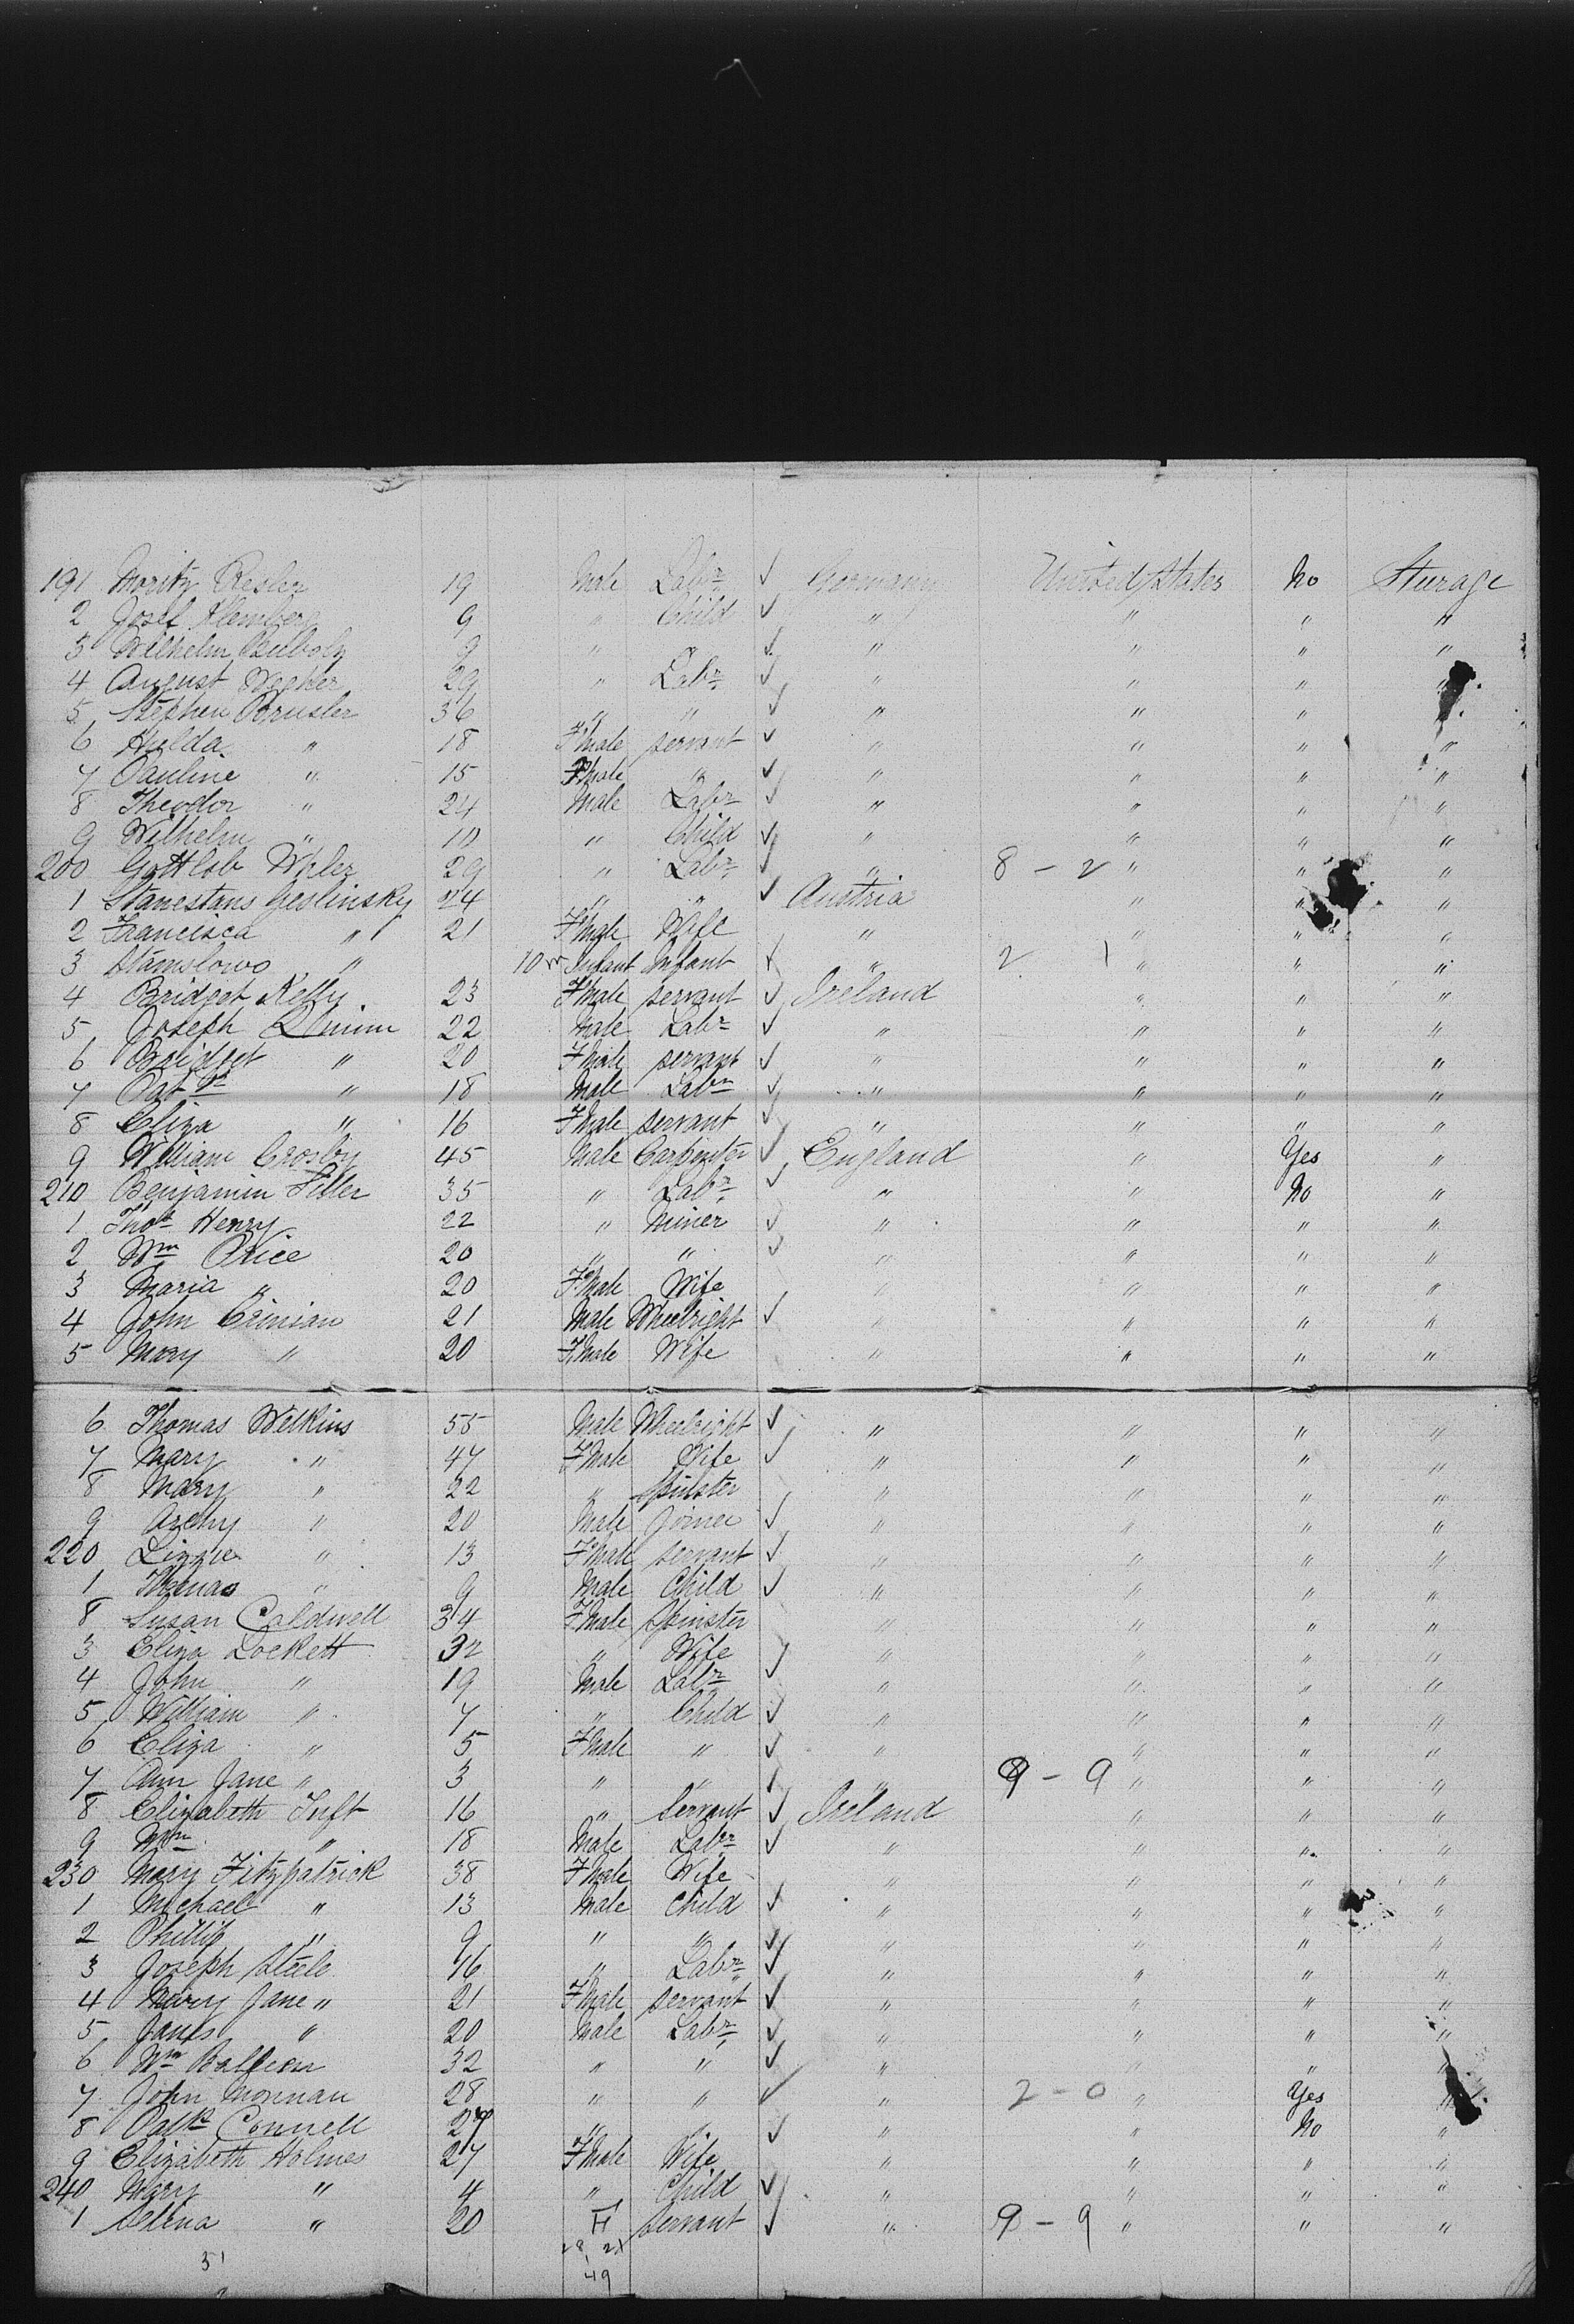 191 Moritz Resler 19 Male Labr ✓ Germany United States No Sturage
2 Josef Klemberg 9 " Child ✓ " " " "
3 Wilhelm Buboly 9 " " ✓ " " " "
4 August Wegner 29 " Labr ✓ " " " "
5 Stephen Brusler 36 " " ✓ " " " "
6 Hulda " 18 F.Male servant ✓ " " " "
7 Pauline " 15 F.Male " ✓ " " " "
8 Theodor " 24 Male Labr ✓ " " " "
9 Wilhelm " 10 " Child ✓ " " " "
200 Gottlob 29 " Labr ✓ " 8 - 2 " " "
1 Stanestans Geslinsky 24 " " ✓ Austria " " "
2 Francisca " 21 F.Male Wife " " " "
3 Stanislowo " 10 m Infant Infant ✓ " 2 1 " " "
4 Bridget Kelly 23 F.Male servant ✓ Ireland " " "
5 Joseph Quinn 22 Male Labr ✓ " " " "
6 Bridget " 20 F.Male servant ✓ " " " "
7 Patk " 18 Male Labr ✓ " " " "
8 Eliza " 16 F.Male servant ✓ " " " "
9 William Crosby 45 Male Carpenter ✓ England " Yes "
210 Benjamin Siller 35 " Labr ✓ " " No "
1 Thos Henry 22 " Miner ✓ " " " "
2 Wm Price 20 " " ✓ " " " "
3 Maria " 20 F.Male Wife " " " "
4 John Crinian 21 Male Wheelright ✓ " " " "
5 Mary " 20 F.Male Wife " " " "
6 Thomas Welkins 55 Male Wheelright ✓ " " " "
7 Mary " 47 F.Male Wife ✓ " " " "
8 Mary " 22 " Spinster " " " "
9 Archy " 20 Male Joiner ✓ " " " "
220 Lizzie " 13 F.Male servant ✓ " " " "
1 Thomas " 9 Male Child ✓ " " " "
8 Susan Caldwell 34 F.Male Spinster " " " "
3 Eliza Lockett 32 " Wife " " " "
4 John " 19 Male Labr ✓ " " " "
5 William " 7 " Child ✓ " " " "
6 Eliza " 5 F.Male " ✓ " " " "
7 Ann Jane " 3 " " ✓ " 9 - 9 " " "
8 Elizabeth Tuft 16 " Servant ✓ Ireland " " "
9 Wm " 18 Male Labr ✓ " " " "
230 Mary Fitzpatrick 38 F.Male Wife " " " "
1 Michael " 13 Male Child ✓ " " " "
2 Phillip " 9 " " ✓ " " " "
3 Joseph Steele 16 " Labr ✓ " " " "
4 Mary Jane " 21 F.Male servant ✓ " " " "
5 James " 20 Male Labr ✓ " " " "
6 Wm Balfean 32 " " ✓ " " " "
7 John Monnan 28 " " ✓ " 2 - 0 " Yes "
8 Patk Connell 27 " " ✓ " " No "
9 Elizabeth Holmes 27 F.Male Wife " " " "
240 Mary " 4 " Child ✓ " " " "
1 Selena " 20 F servant ✓ " 9 - 9 " " "
28 21
51 49